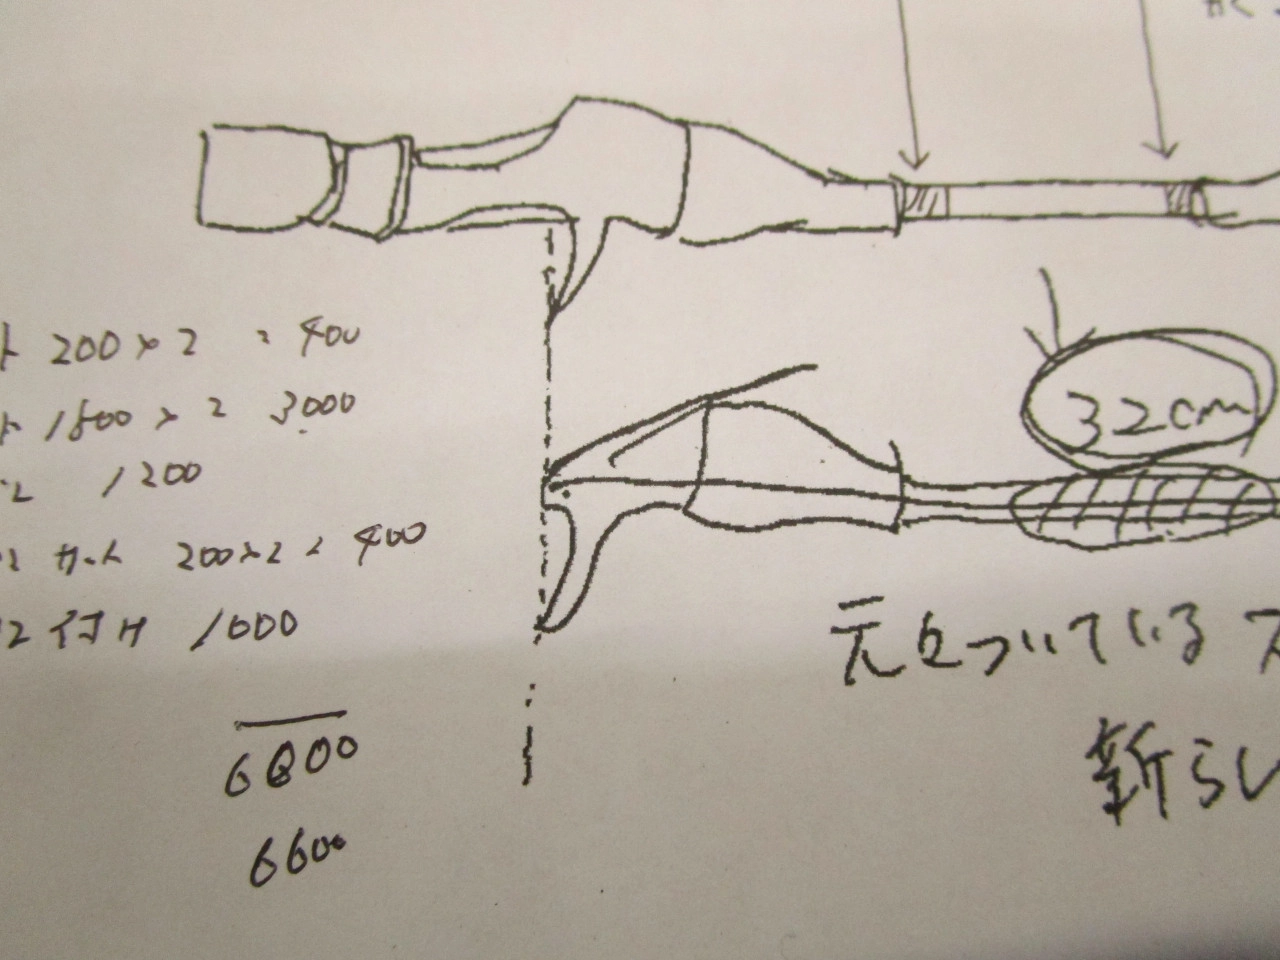 ト 200×2 = 400
ト 1500×2 3000
1200
カット 200×2 = 400
付け 1000
6000
6600
32cm
元をついている ス
新らし